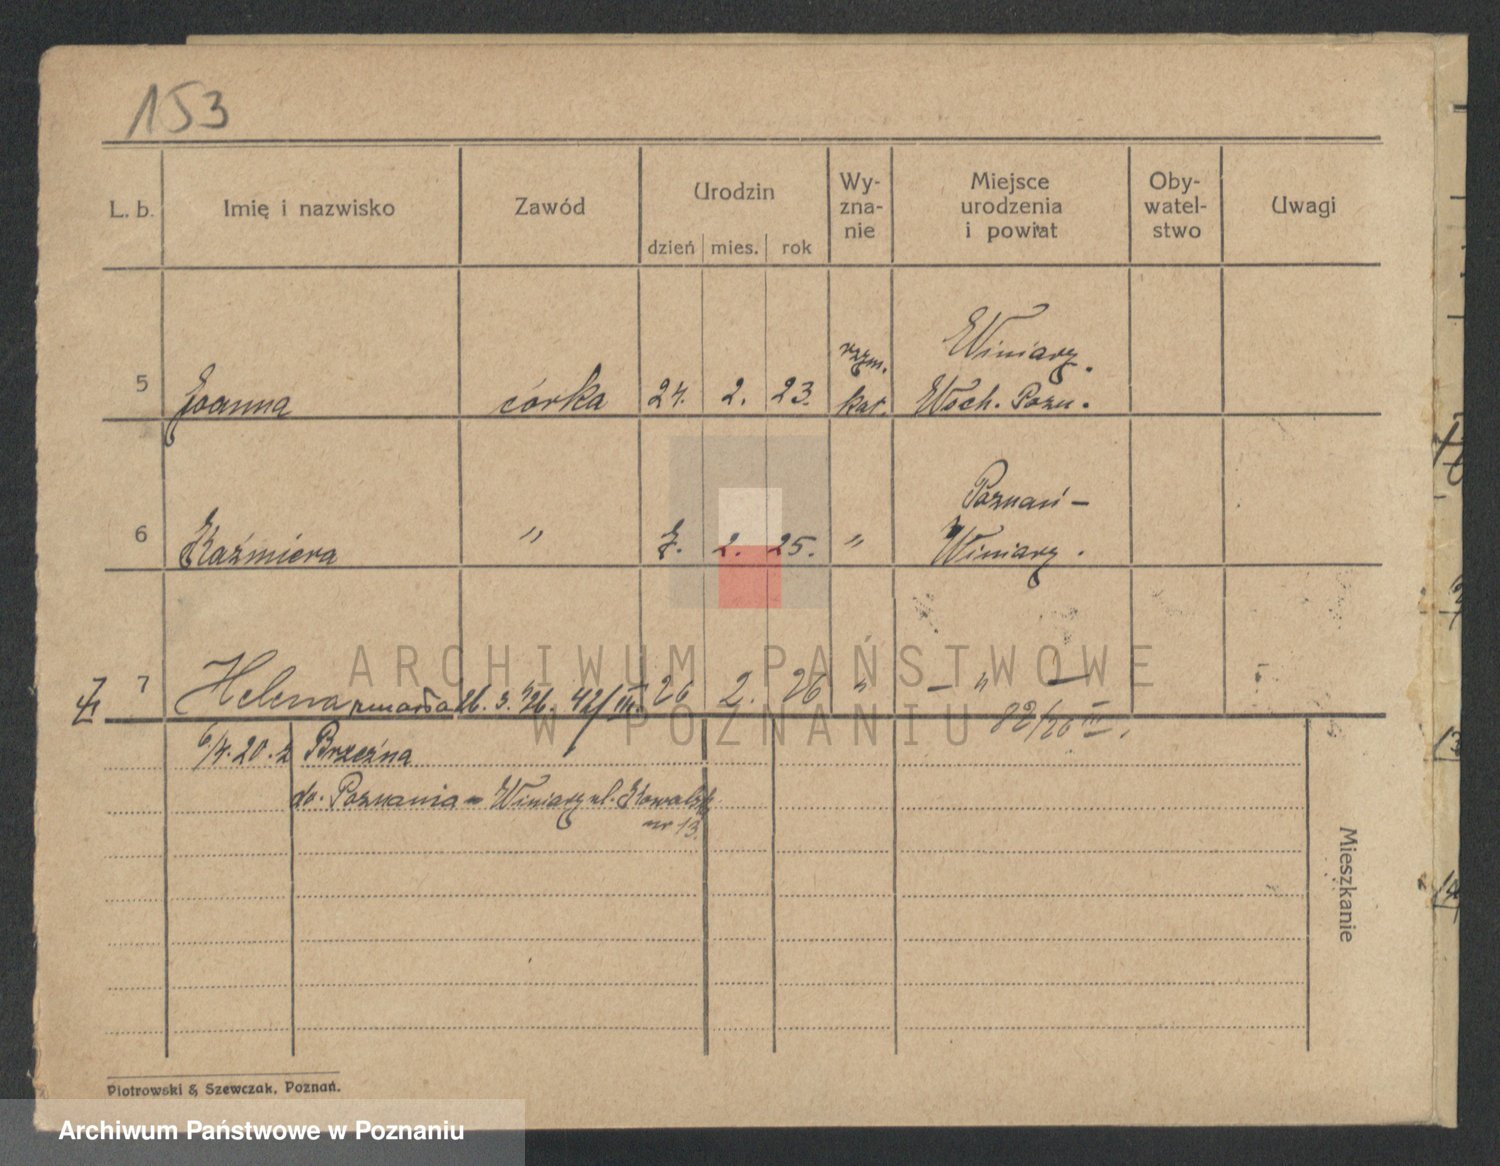 153
L. b. Imię i nazwisko Zawód Urodzin dzień mies. rok Wy-zna-nie Miejsce urodzenia i powiat Oby-watel-stwo Uwagi
Winiary.
5 Joanna córka 24. 2. 23. rzym. kat. Wsch. Pozn.
Poznań –
6 Kaźmiera " 7. 2. 25. " Winiary.
ARCHIWUM PAŃSTWOWE
7 Helena zmarła 26. 3. 26. 42/III. 26 2. 26 " – " –
W POZNANIU
82/26 III.
6/7. 20. z Brzeźna
do Poznania – Winiary ul.
nr 13.
Mieszkanie
Piotrowski & Szewczak, Poznań.
Archiwum Państwowe w Poznaniu